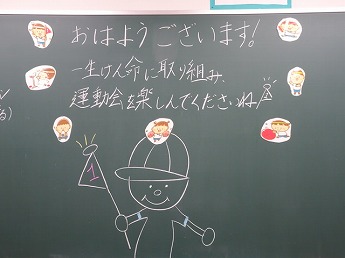 おはようございます!
一生けん命に取り組み、
運動会を楽しんでくださいね
る)
1